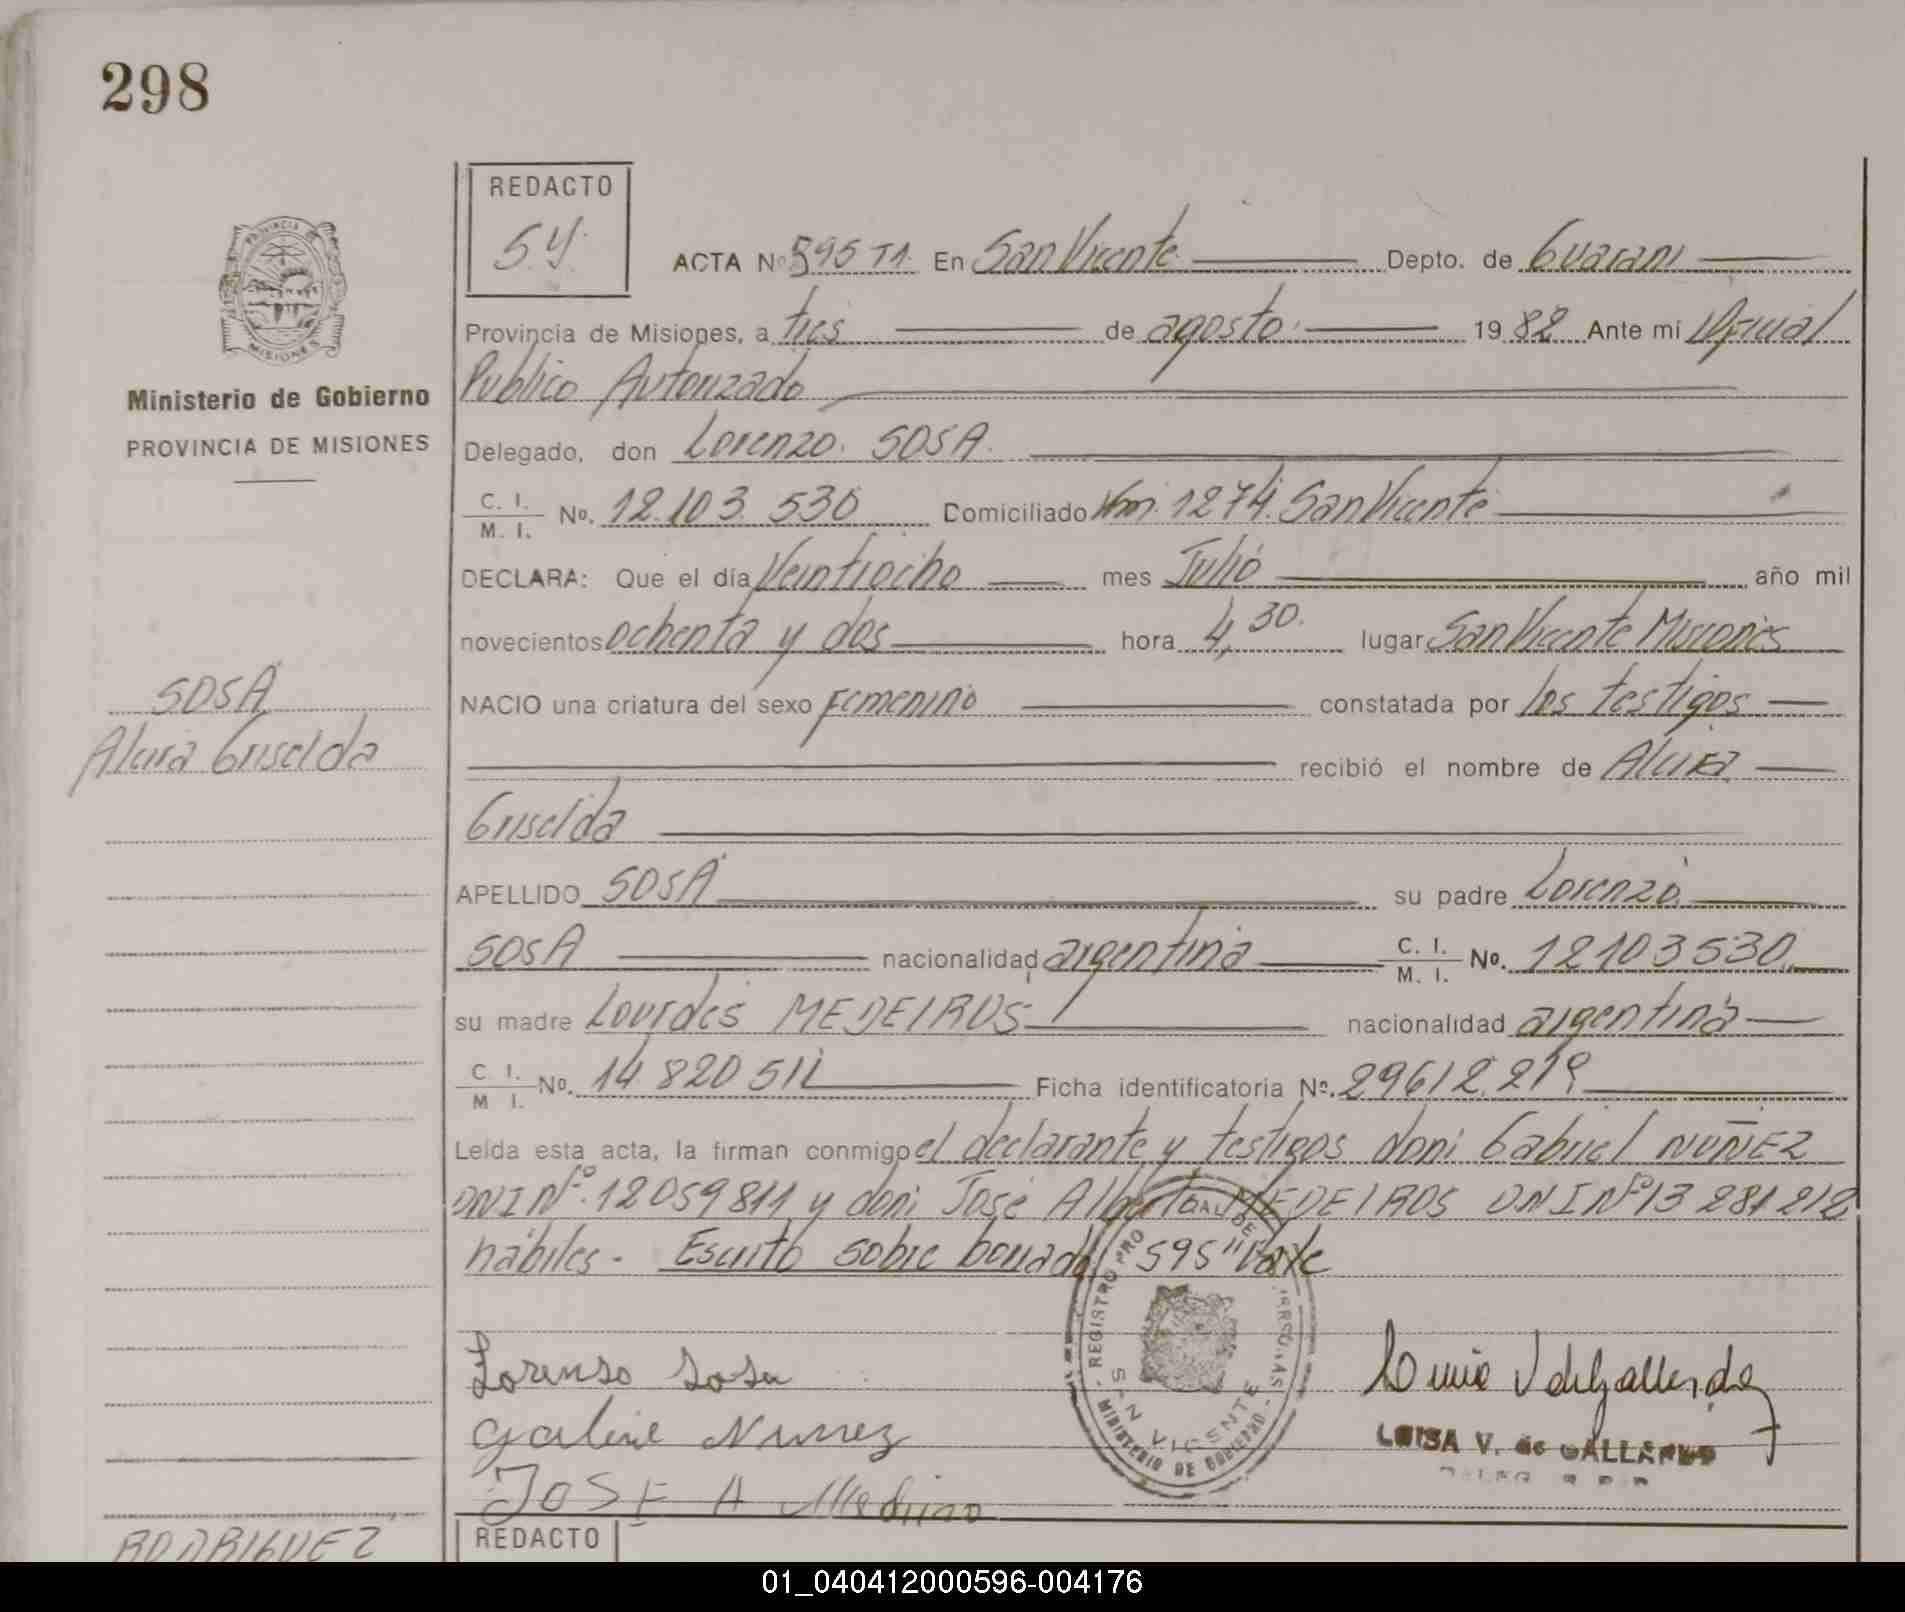 298
REDACTO
S.Y.
ACTA Nº 595 T1. En San Vicente Depto. de Guarani
Provincia de Misiones, a tres de agosto. 1982 Ante mí Oficial
Publico Autorizado
PROVINCIA DE
MISIONES
Ministerio de Gobierno
PROVINCIA DE MISIONES
Delegado, don Lorenzo. SOSA.
C. I.
M. I. Nº. 12.103.530 Domiciliado Km. 1274. San Vicente
DECLARA: Que el día Veintiocho mes Julio año mil
novecientos ochenta y dos hora 4,30. lugar San Vicente Misiones
SOSA
Alcira Griselda
NACIO una criatura del sexo Femenino constatada por los testigos
recibió el nombre de Alcira
Griselda
APELLIDO SOSA su padre Lorenzo
SOSA nacionalidad argentina C. I.
M. I. Nº. 12103530.
su madre Lourdes MEDEIROS nacionalidad argentina
C. I.
M I. Nº. 14.820 511 Ficha identificatoria Nº. 29612.219
Leída esta acta, la firman conmigo el declarante y testigos don: Gabriel NUÑEZ
DNI Nº. 12059811 y don: José Alberto MEDEIROS DNI Nº 13 281212
hábiles.- Escrito sobre borrado "595" Vale
REGISTRO PRO
SAN VICENTE
MINISTERIO DE GOBIERNO
Lorenso Sosa
Gabriel Nunez
JOSE A
LUISA V. de GALLARDO
RODRIGUEZ
REDACTO
01_040412000596-004176